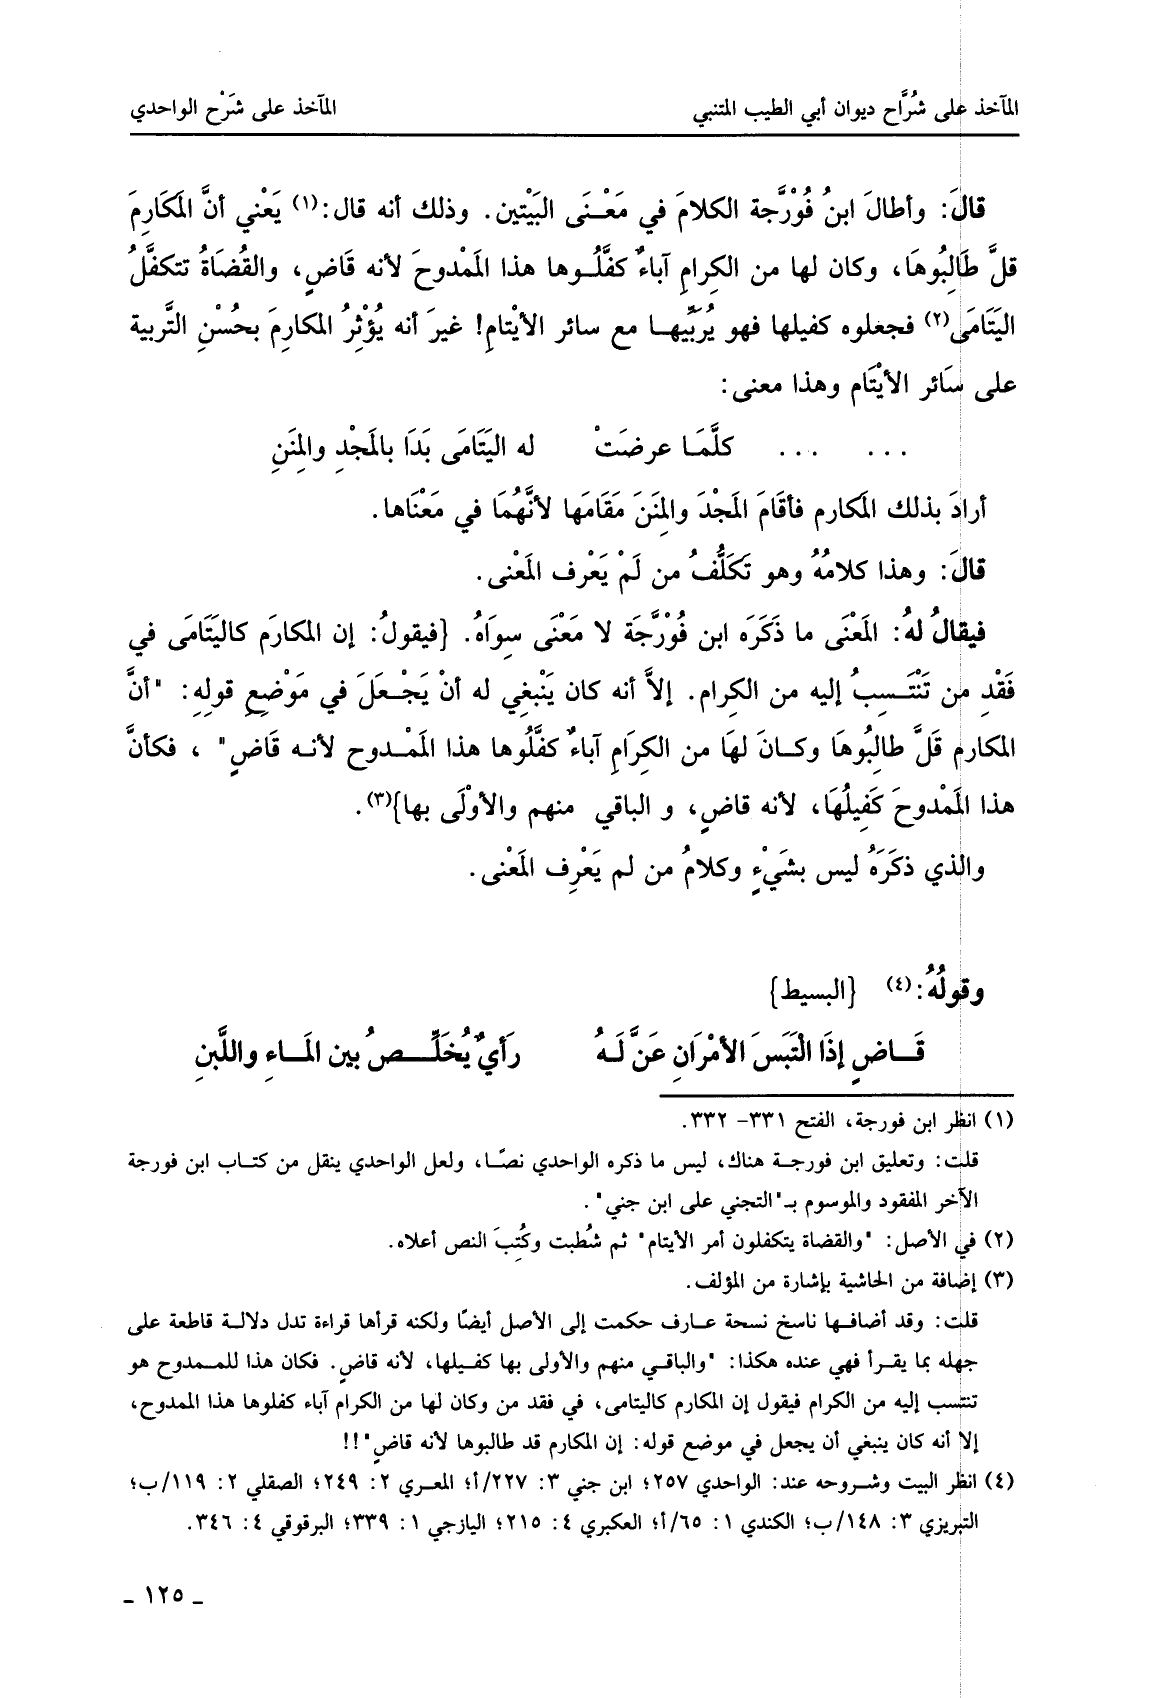 المآخذ على شُرَّاح ديوان أبي الطيب المتنبي
المآخذ على شَرْح الواحدي
قالَ: وأطالَ ابنُ فُوْرَّجة الكلامَ في مَعْنَى البَيْتين. وذلك أنه قال:(١) يَعْني أنَّ المَكارِمَ
قلَّ طَالِبُوهَا، وكان لها من الكرامِ آباءٌ كفَّلُوها هذا المَمْدوحَ لأنه قَاضٍ، والقُضَاةُ تتكفَّلُ
اليَتَامَى(٢) فجعلوه كفيلها فهو يُرَبِّيها مع سائر الأيْتامِ! غيرَ أنه يُؤْثِرُ المكارِمَ بحُسْنِ التَّربية
على سَائر الأيْتَام وهذا معنى:
... ... كلَّمَا عرضَتْ له اليَتَامَى بَدَا بالمَجْدِ والمِنَنِ
أرادَ بذلك المَكارم فأقَامَ المَجْدَ والمِنَنَ مَقَامَها لأنَّهُمَا في مَعْنَاها.
قالَ: وهذا كلامُهُ وهو تَكَلُّفُ من لَمْ يَعْرف المَعْنى.
فيقالُ لهُ: المَعْنَى ما ذَكَرَه ابن فُوْرَّجَة لا مَعْنَى سِوَاهُ. {فيقولُ: إن المكارَم كاليَتَامَى في
فَقْدِ من تَنْتَسِبُ إليه من الكرام. إلاَّ أنه كان يَنْبغِي له أنْ يَجْعَلَ في مَوْضِعِ قولِهِ: "أنَّ
المكارم قَلَّ طالِبُوهَا وكانَ لهَا من الكِرَامِ آباءٌ كفَّلُوها هذا المَمْدوح لأنه قَاضٍ" ، فكأنَّ
هذا المَمْدوحَ كَفِيلُهَا، لأنه قاضٍ، و الباقي منهم والأوْلَى بها}(٣).
والذي ذكَرَهُ ليس بشَيْءٍ وكلامُ من لم يَعْرِف المَعْنى.
وقولُهُ:(٤) {البسيط}
قَاضٍ إذَا الْتَبَسَ الأمْرَانِ عَنَّ لَهُ رَأيٌ يُخَلِّصُ بين المَاءِ واللَّبنِ
(١) انظر ابن فورجة، الفتح ٣٣١- ٣٣٢.
قلت: وتعليق ابن فورجة هناك، ليس ما ذكره الواحدي نصًّا، ولعل الواحدي ينقل من كتاب ابن فورجة
الآخر المفقود والموسوم بـ"التجني على ابن جني".
(٢) في الأصل: "والقضاة يتكفلون أمر الأيتام" ثم شُطبت وكُتِبَ النص أعلاه.
(٣) إضافة من الحاشية بإشارة من المؤلف.
قلت: وقد أضافها ناسخ نسخة عارف حكمت إلى الأصل أيضًا ولكنه قرأها قراءة تدل دلالة قاطعة على
جهله بما يقرأ فهي عنده هكذا: "والباقي منهم والأولى بها كفيلها، لأنه قاضٍ. فكان هذا للممدوح هو
تنتسب إليه من الكرام فيقول إن المكارم كاليتامى، في فقد من وكان لها من الكرام آباء كفلوها هذا الممدوح،
إلا أنه كان ينبغي أن يجعل في موضع قوله: إن المكارم قد طالبوها لأنه قاضٍ"!!
(٤) انظر البيت وشروحه عند: الواحدي ٢٥٧؛ ابن جني ٣: ٢٢٧/أ؛ المعري ٢: ٢٤٩؛ الصقلي ٢: ١١٩/ب؛
التبريزي ٣: ١٤٨/ب؛ الكندي ١: ٦٥/أ؛ العكبري ٤: ٢١٥؛ اليازجي ١: ٣٣٩؛ البرقوقي ٤: ٣٤٦.
ـ ١٢٥ ـ